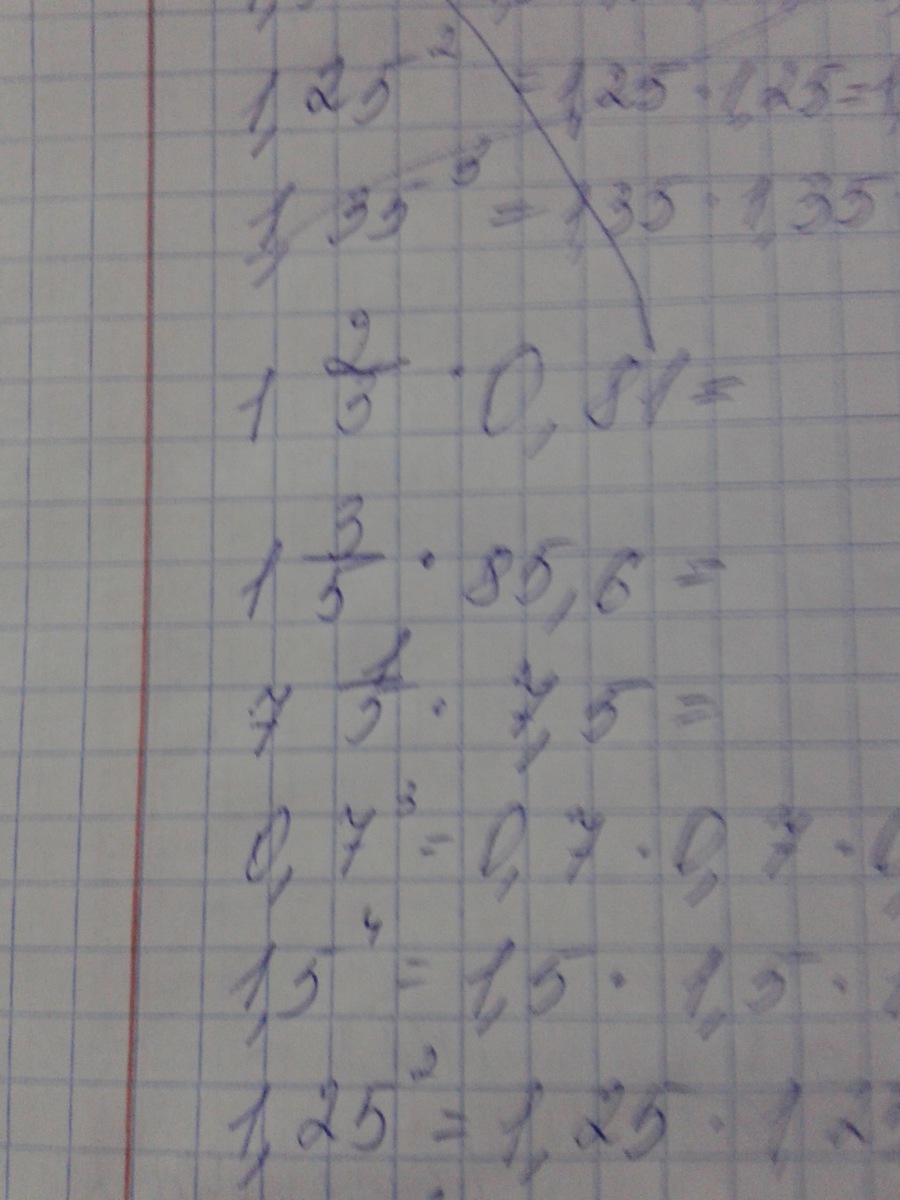 1,25² = 1,25 · 1,25 = 1,
1,35³ = 1,35 · 1,35 ·
1 2/3 · 0,81 =
1 3/5 · 85,6 =
7 1/5 · 7,5 =
0,7³ = 0,7 · 0,7 · 0,
1,5⁴ = 1,5 · 1,5 ·
1,25² = 1,25 · 1 25